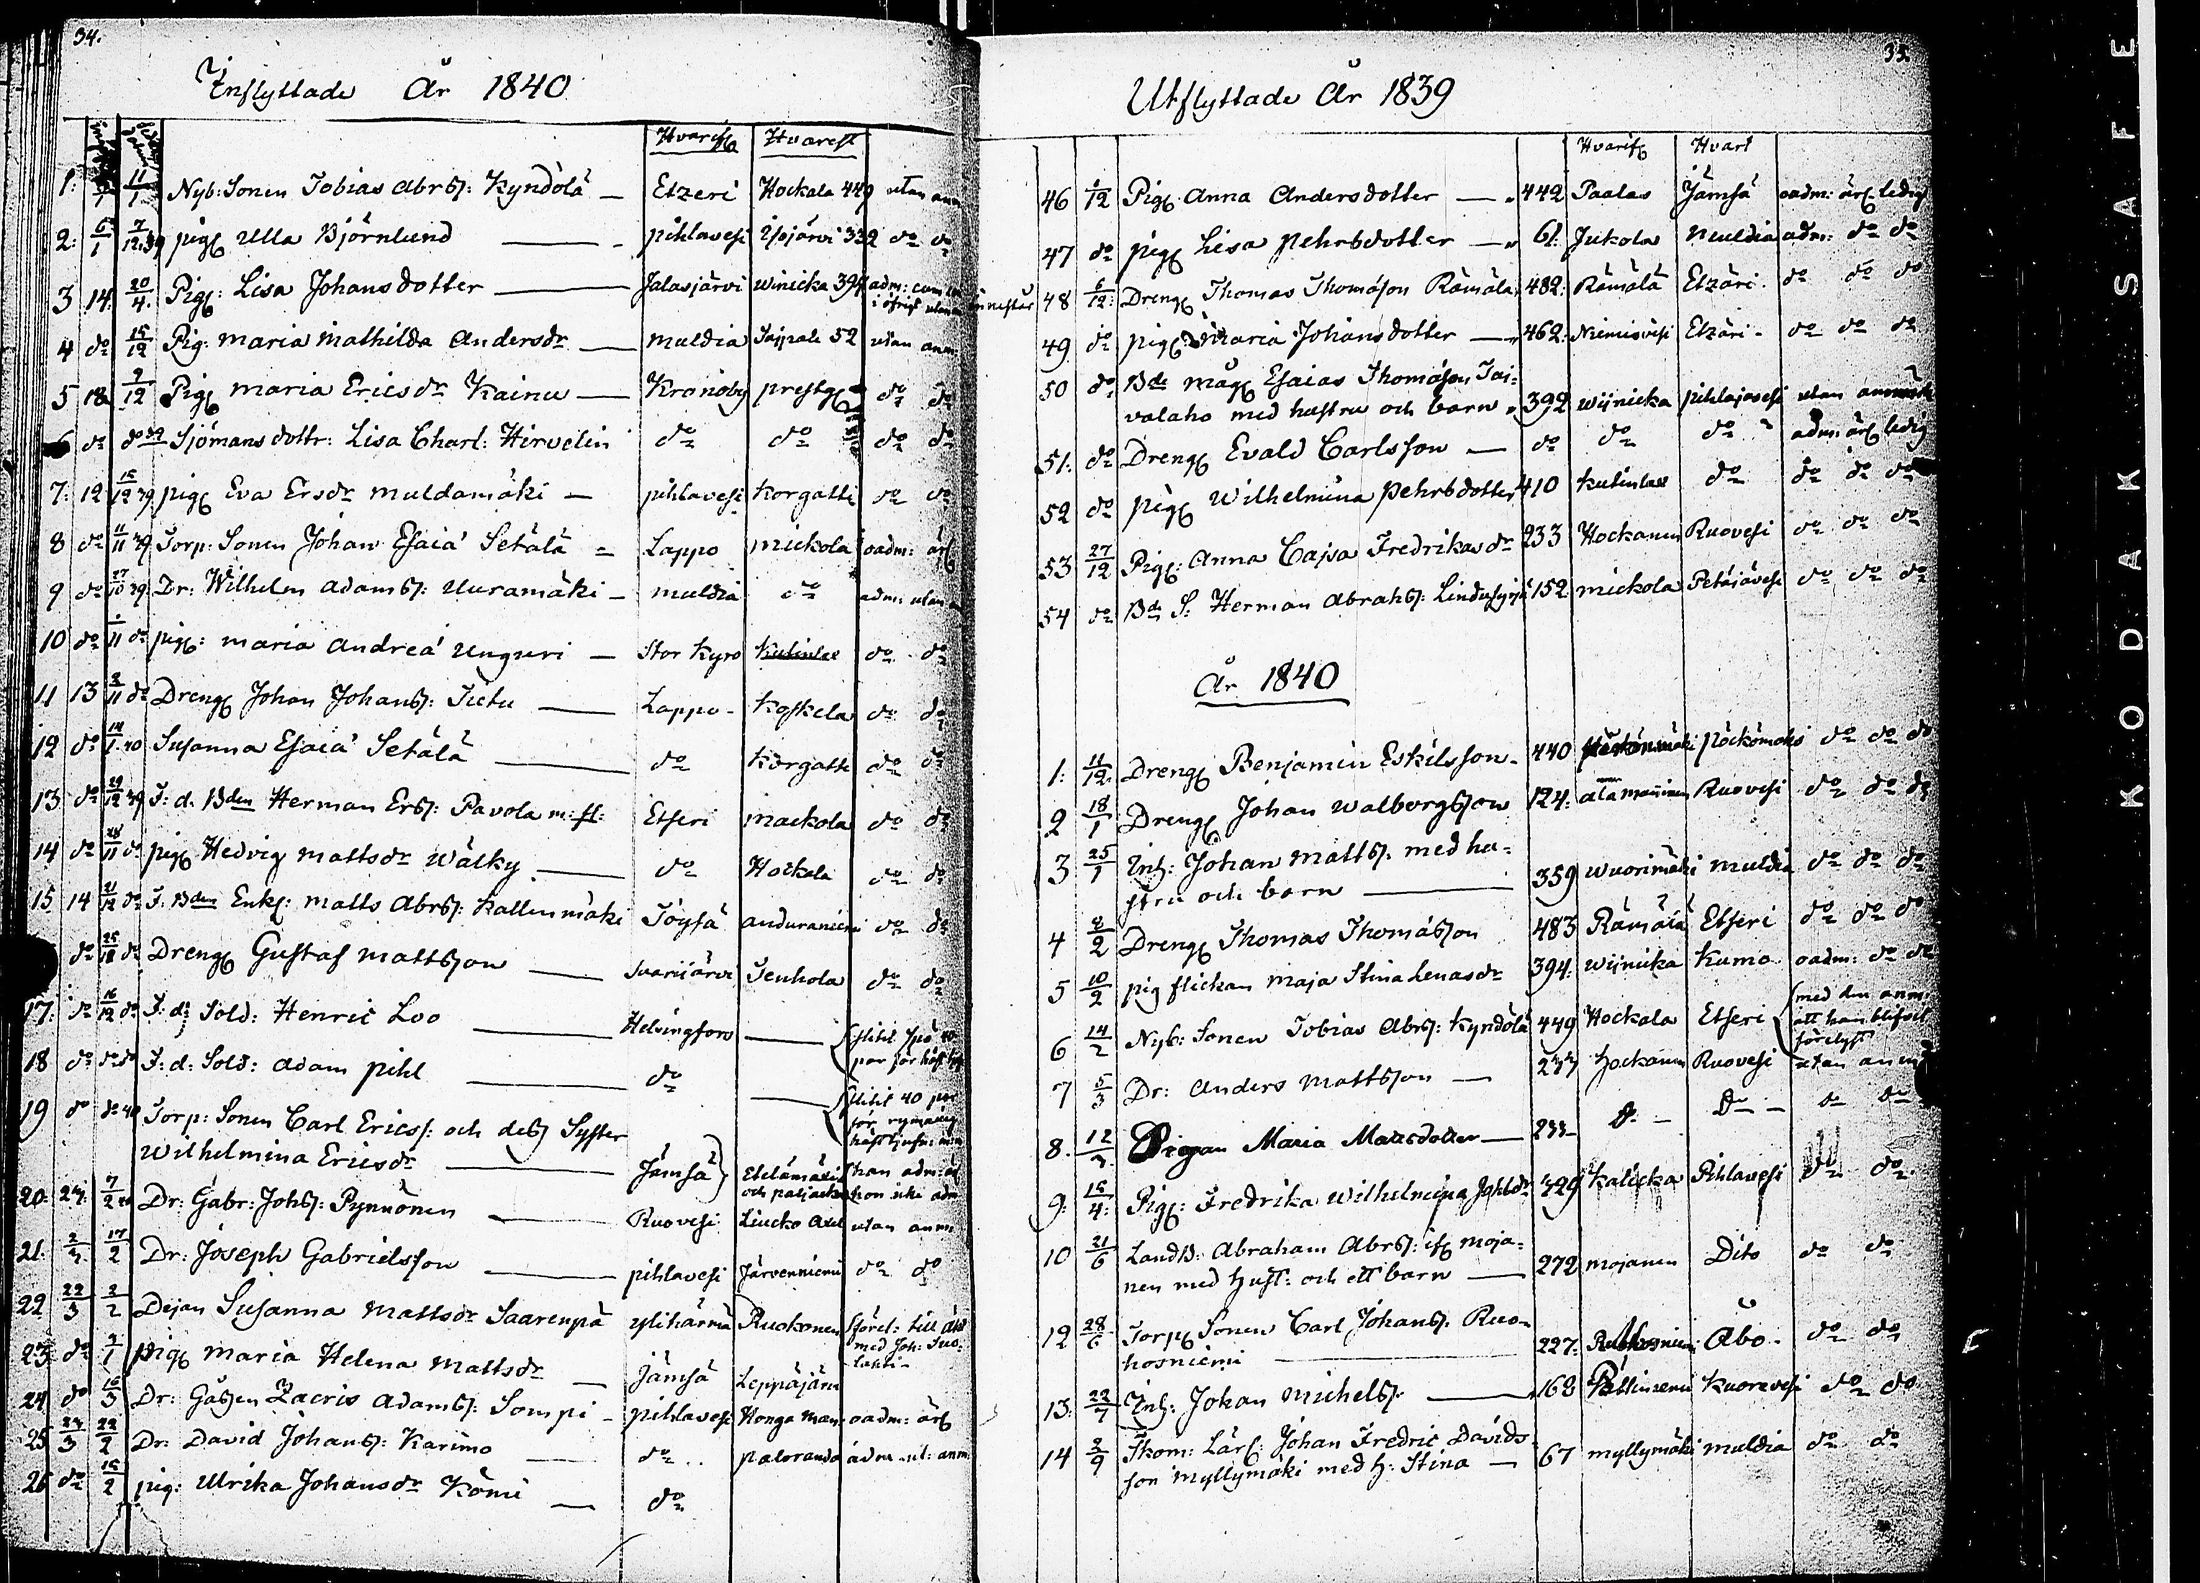 34.
Inflyttade År 1840
Hvarifr. Hvarest
1: 11/1 Nyb: Sonen Tobias Abrss: Kyndölä — Etzeri Hockala 449 utan anm
2: 6/1 7/12.39 pig. Ulla Björnlund — pihlavesi Ylojärvi 332 do do
3 14. 20/4. Pig: Lisa Johansdotter — Jalasjärvi Winicka 394 adm:
i öfrigt utan
4 do 15/12 Pig: Maria Mathilda Andersdr — Muldia 52 utan anm:
5 18 9/12 Pig. Maria Ericsdr Kainu — Kronoby prestg. do do
6 do do 39 Sjömans dottr: Lisa Charl: Hirvelin do do do do
7: 12 15/12 39 pig. Eva Ersdr Muldamäki — pihlavesi Korgatti do do
8 do 11/11 39 Torp: Sonen Johan Esaiæ Setälä — Lappo Mickola oadm: ärl
9 do 27/10 39 Dr: Wilhelm Adamss: Uuramäki — Muldia do adm: utan a
10 do /11 do pig: Maria Andreæ Unguri — Stor Kyro Kutinlax do do
11 13 3/11 do Dreng. Johan Johanss: Tietu — Lappo - Koskela do do
12 do 14/1. 40 Susanna Esaiæ Setälä — do Korgatti do do
13 do 29/12 39 F: d. Bden Herman Erss: Pavola m: fl: Etseri Mackola do do
14 do 28/11 do pig. Hedvig Mattsdr Wälky — do Hockala do do
15 14 21/12 do F: Bden Enkl: Matts Abrss: Kallenmäki Töysä anduraniemi do do
do 25/12 do Dreng. Gustaf Mattsson — Saarijärvi Tenhola do do
17: do 16/12 do F: d: Sold: Henric Loo — Helsingfors —
18 do do do F: d: Sold: Adam Pihl — do —
19 do do 40 Torp: Sonen Carl Ericss: och dess Syster
Wilhelmina Ericsdr — Jämsä
20: 24: 7/2 40 Dr: Gabr: Johss: Pynnönen — Ruovesi utan anm:
21. 2/3 17/2 Dr: Joseph Gabrielsson — pihlavesi Järvenniemi do do
22 22/3 2/2 Dejan Susanna Mattsdr Saarenpä ylihärmä Ruokonen
23: do 7/1 pig. Maria Helena Mattsdr — Jämsä Leppäjärvi
24 do 16/3 Dr: Gåssen Zacris Adamss: Sompi - pihlavesi Honga man: oadm: ärl
25 24/3 22/2 Dr: David Johanss: Karimo — do paloranda adm: ut: anm:
26 do 15/2 pig: Ulrika Johansdr Kömi — do
35
Utflyttade År 1839
Hvarifr. Hvart
46 6/12 Pig. Anna Andersdotter — 442 Paalas Jämsä oadm: ärl. ledig
47 do pig. Lisa Pehrsdotter — 61. Jukola Muldia adm: do do
48 6/12: Dreng. Thomas Thomasson Rämälä 482: Rämälä Etzäri. do do do
49 do pig. Maria Johansdotter — 462: Niemisvesi Etzäri - do do do
50 do Bde måg. Esaias Thomasson Tai=
valaho med hustru och barn 392 wijnicka pihlajavesi utan anmärk
51: do Dreng. Evald Carlsson — do do do adm: ärl ledig
52 do pig. Wilhelmina Pehrsdotter 410 Kutinlax do do do do
53 27/12 Pig: Anna Cajsa Fredrikasdr 233 Hockanen Ruovesi do do do
54 do Bde S: Herman Abrahss: 152 mickola Petäjävesi do do do
År 1840
1: 11/12. Dreng. Benjamin Eskilsson - 440 do do do
2 18/1 Dreng. Johan Walborgsson 124: Ruovesi do do do
3 25/1 Inh: Johan Mattss: med hu=
stru och barn — 359 Wuorimäki Muldia do do do
4 2/2 Dreng. Thomas Thomasson 483 Rämälä Etseri do do do
5 10/2 pig flickan Maja Stina Lenasdr 394: Wijnicka Kumo oadm: do do
6 14/2 Nyb: Sonen Tobias Abrss: Kyndölä 449 Hockala Etseri med den anm:
att han blifvit
förelyst
7 5/3 Dr: Anders Mattsson — 233 Hockanen Ruovesi utan anm
8. 12/3. Pigan Maria Mattsdotter — 233 - do - do - do do
9: 16/4: Pig: Fredrika Wilhelmina Johsdr 329 Kalicka Pihlavesi do do
10 21/6 Landb: Abraham Abrss: ifr. Moja=
nen med hust: och ett barn — 272 Mojanen Dito do do
12 28/6 Torp. Sonen Carl Johanss: Ruo=
hosniemi — 227: Ruohosniemi Åbo. do do
13: 22/7 Inh: Johan Michelss: — 168 Kuorevesi do do
14 2/9 Skom: Lärl: Johan Fredric Davids
son Myllymäki med h: Stina — 67 Myllymäki Muldia do do
KODAK SAFE